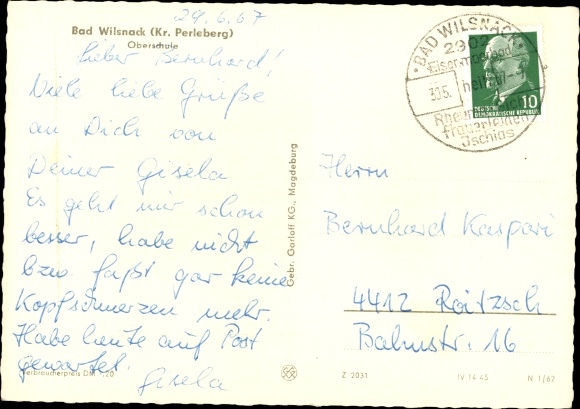 29.6.67
Bad Wilsnack (Kr. Perleberg)
Oberschule
lieber Bernhard!
Viele liebe Grüße
an Dich von
Deiner Gisela
Es geht mir schon
besser, habe nicht
bzw. faßt gar keine
Kopfschmerzen mehr.
Habe heute auf Post
gewartet.
Gisela
Verbraucherpreis DM 0,20
Gebr. Garloff KG., Magdeburg
BAD WILSNACK
2902
Eisenmoorbad
30.6.
heilt
Rheuma
Frauenleiden
Ischias
DEUTSCHE
DEMOKRATISCHE REPUBLIK
10
Herrn
Bernhard Kaspari
4412 Roitzsch
Bahnstr. 16
Z 2031
IV 14 45
N 1/62